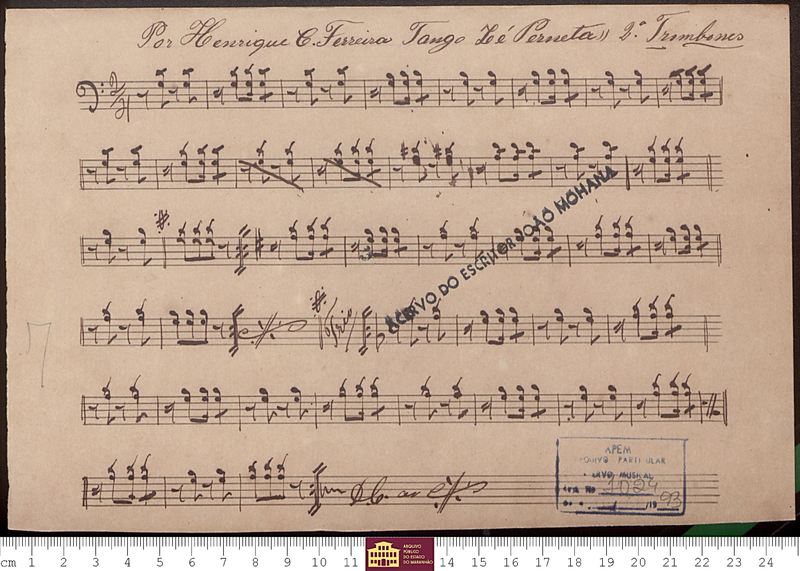 Por Henrique C. Ferreira Tango Zé Perneta 2º Trombones
ACERVO DO ESCRITOR JOÃO MOHANA
Trio
D.C. ao
APEM
ARQUIVO PARTICULAR
ACERVO MUSICAL
1024
93
cm 1 2 3 4 5 6 7 8 9 10 11 14 15 16 17 18 19 20 21 22 23 24
ARQUIVO
PÚBLICO
DO ESTADO
DO MARANHÃO